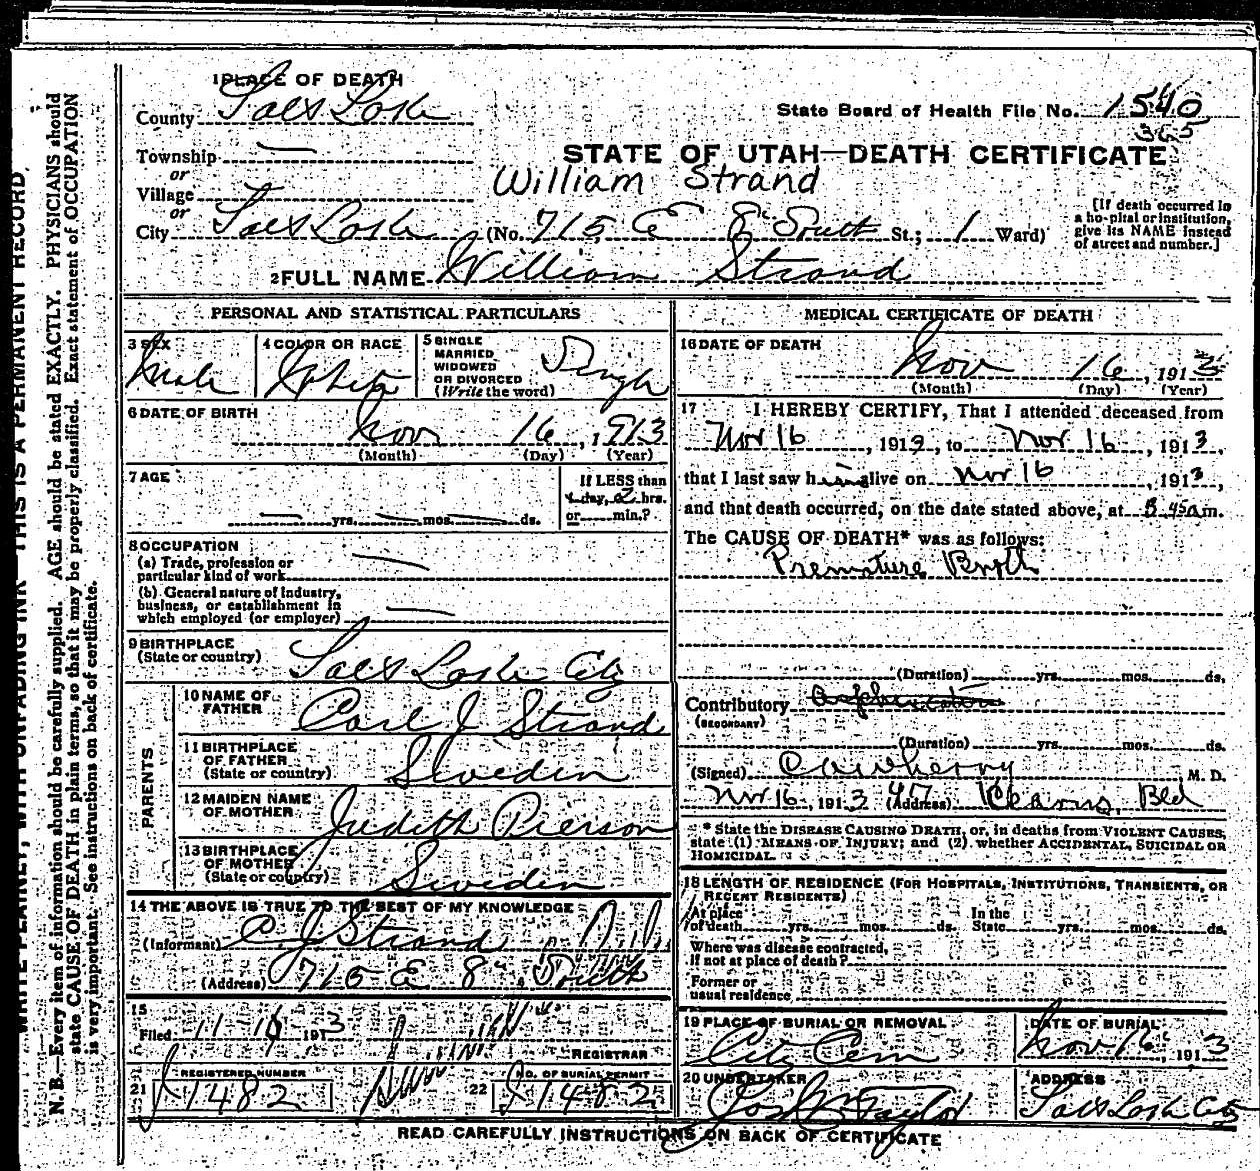 1 PLACE OF DEATH
County Salt Lake
State Board of Health File No. 1540
365
Township —
or
Village
or
STATE OF UTAH—DEATH CERTIFICATE
William Strand
City Salt Lake (No. 715 E 8" South St.; 1 Ward)
[If death occurred in a hospital or institution, give its NAME instead of street and number.]
2 FULL NAME William Strand
PERSONAL AND STATISTICAL PARTICULARS
3 SEX
Male
4 COLOR OR RACE
White
5 SINGLE
MARRIED
WIDOWED
OR DIVORCED
(Write the word)
Single
6 DATE OF BIRTH
Nov 16, 1913
(Month) (Day) (Year)
7 AGE
— yrs. — mos. — ds.
If LESS than
1 day, 2 hrs.
or min.?
8 OCCUPATION
(a) Trade, profession or
particular kind of work —
(b) General nature of industry,
business, or establishment in
which employed (or employer) —
9 BIRTHPLACE
(State or country) Salt Lake City
PARENTS
10 NAME OF
FATHER Carl J Strand
11 BIRTHPLACE
OF FATHER
(State or country) Sweden
12 MAIDEN NAME
OF MOTHER Judith Pierson
13 BIRTHPLACE
OF MOTHER
(State or country) Sweden
14 THE ABOVE IS TRUE TO THE BEST OF MY KNOWLEDGE
(Informant) C J Strand
(Address) 715 E 8" South
15
Filed 11-16 1913
REGISTRAR
REGISTERED NUMBER
21 J1482
NO. OF BURIAL PERMIT
22 J1482
MEDICAL CERTIFICATE OF DEATH
16 DATE OF DEATH
Nov 16, 1913
(Month) (Day) (Year)
17 I HEREBY CERTIFY, That I attended deceased from
Nov 16, 1913, to Nov 16, 1913,
that I last saw him alive on Nov 16, 1913,
and that death occurred, on the date stated above, at 8 45 am.
The CAUSE OF DEATH* was as follows:
Premature Birth
(Duration) yrs. mos. ds.
Contributory
(SECONDARY)
(Duration) yrs. mos. ds.
(Signed) M. D.
Nov 16, 1913 (Address) 417 Kearns Bld
* State the DISEASE CAUSING DEATH, or, in deaths from VIOLENT CAUSES,
state (1) MEANS OF INJURY; and (2) whether ACCIDENTAL, SUICIDAL OR
HOMICIDAL.
18 LENGTH OF RESIDENCE (FOR HOSPITALS, INSTITUTIONS, TRANSIENTS, OR
RECENT RESIDENTS)
At place
of death yrs. mos. ds. In the
State yrs. mos. ds.
Where was disease contracted,
if not at place of death?
Former or
usual residence
19 PLACE OF BURIAL OR REMOVAL
City Cem
DATE OF BURIAL
Nov 16, 1913
20 UNDERTAKER
Jos Wm Taylor
ADDRESS
Salt Lake City
READ CAREFULLY INSTRUCTIONS ON BACK OF CERTIFICATE
WRITE PLAINLY, WITH UNFADING INK—THIS IS A PERMANENT RECORD
N. B.—Every item of information should be carefully supplied. AGE should be stated EXACTLY. PHYSICIANS should
state CAUSE OF DEATH in plain terms, so that it may be properly classified. Exact statement of OCCUPATION
is very important. See instructions on back of certificate.